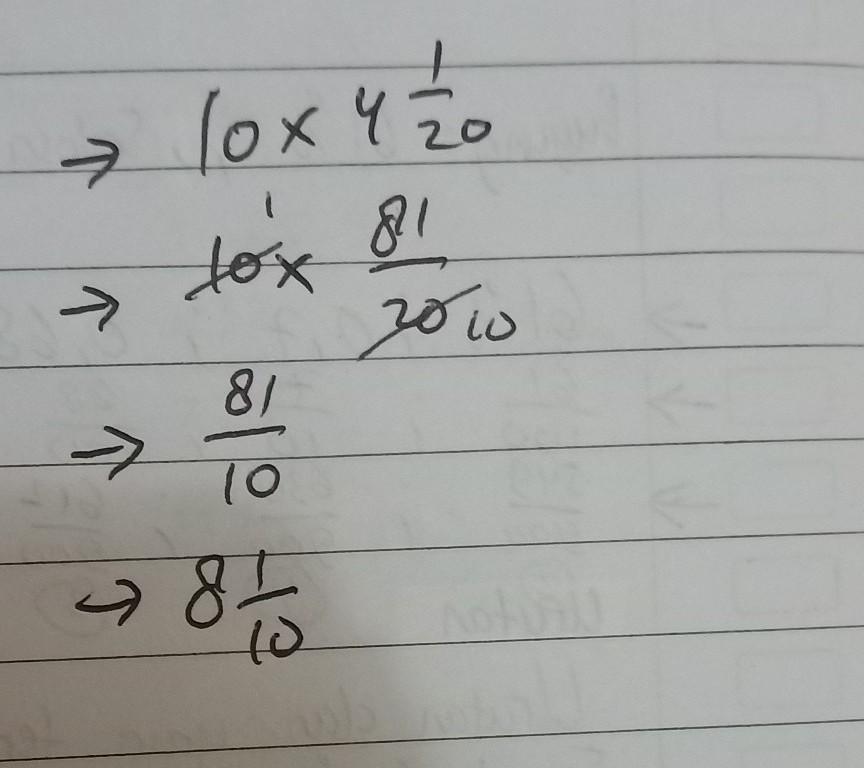 → 10 × 4 1/20
→ 10 1 × 81/20 10
→ 81/10
→ 8 1/10